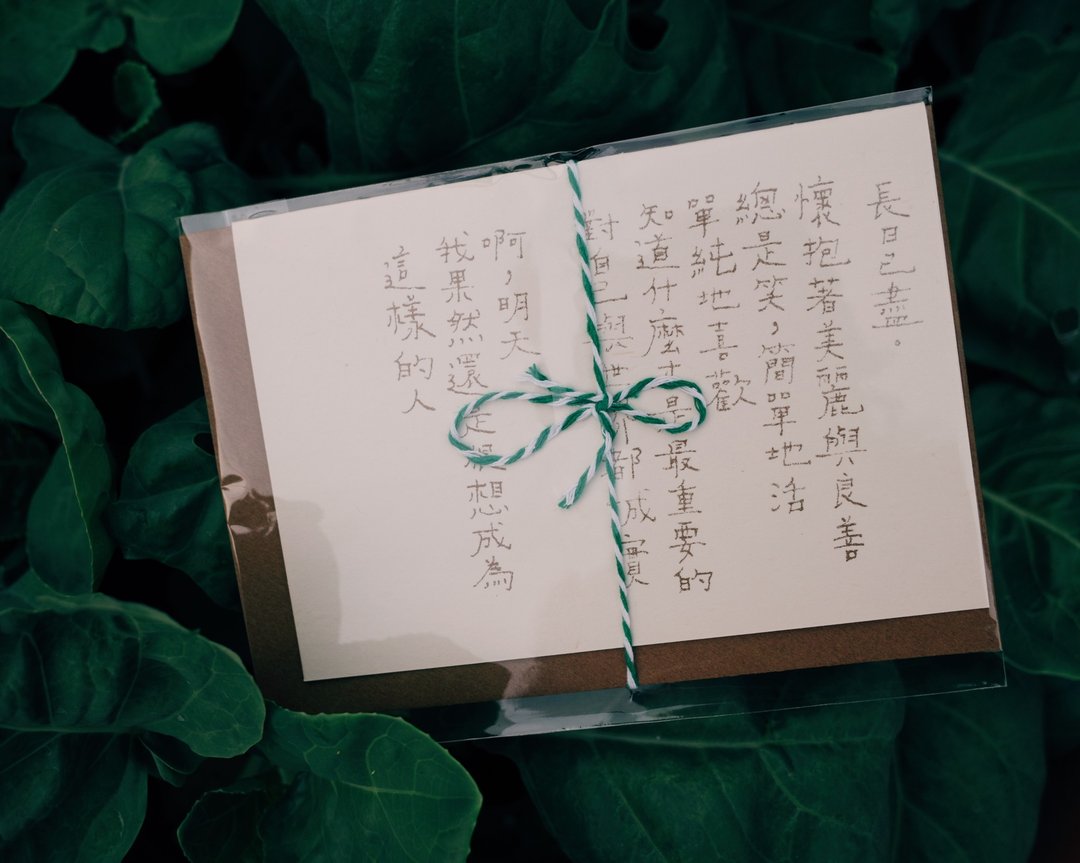 長日已盡。
懷抱著美麗與良善
總是笑，簡單地活
單純地喜歡
知道什麼才是最重要的
對自己與世界都誠實
啊，明天
我果然還是很想成為
這樣的人